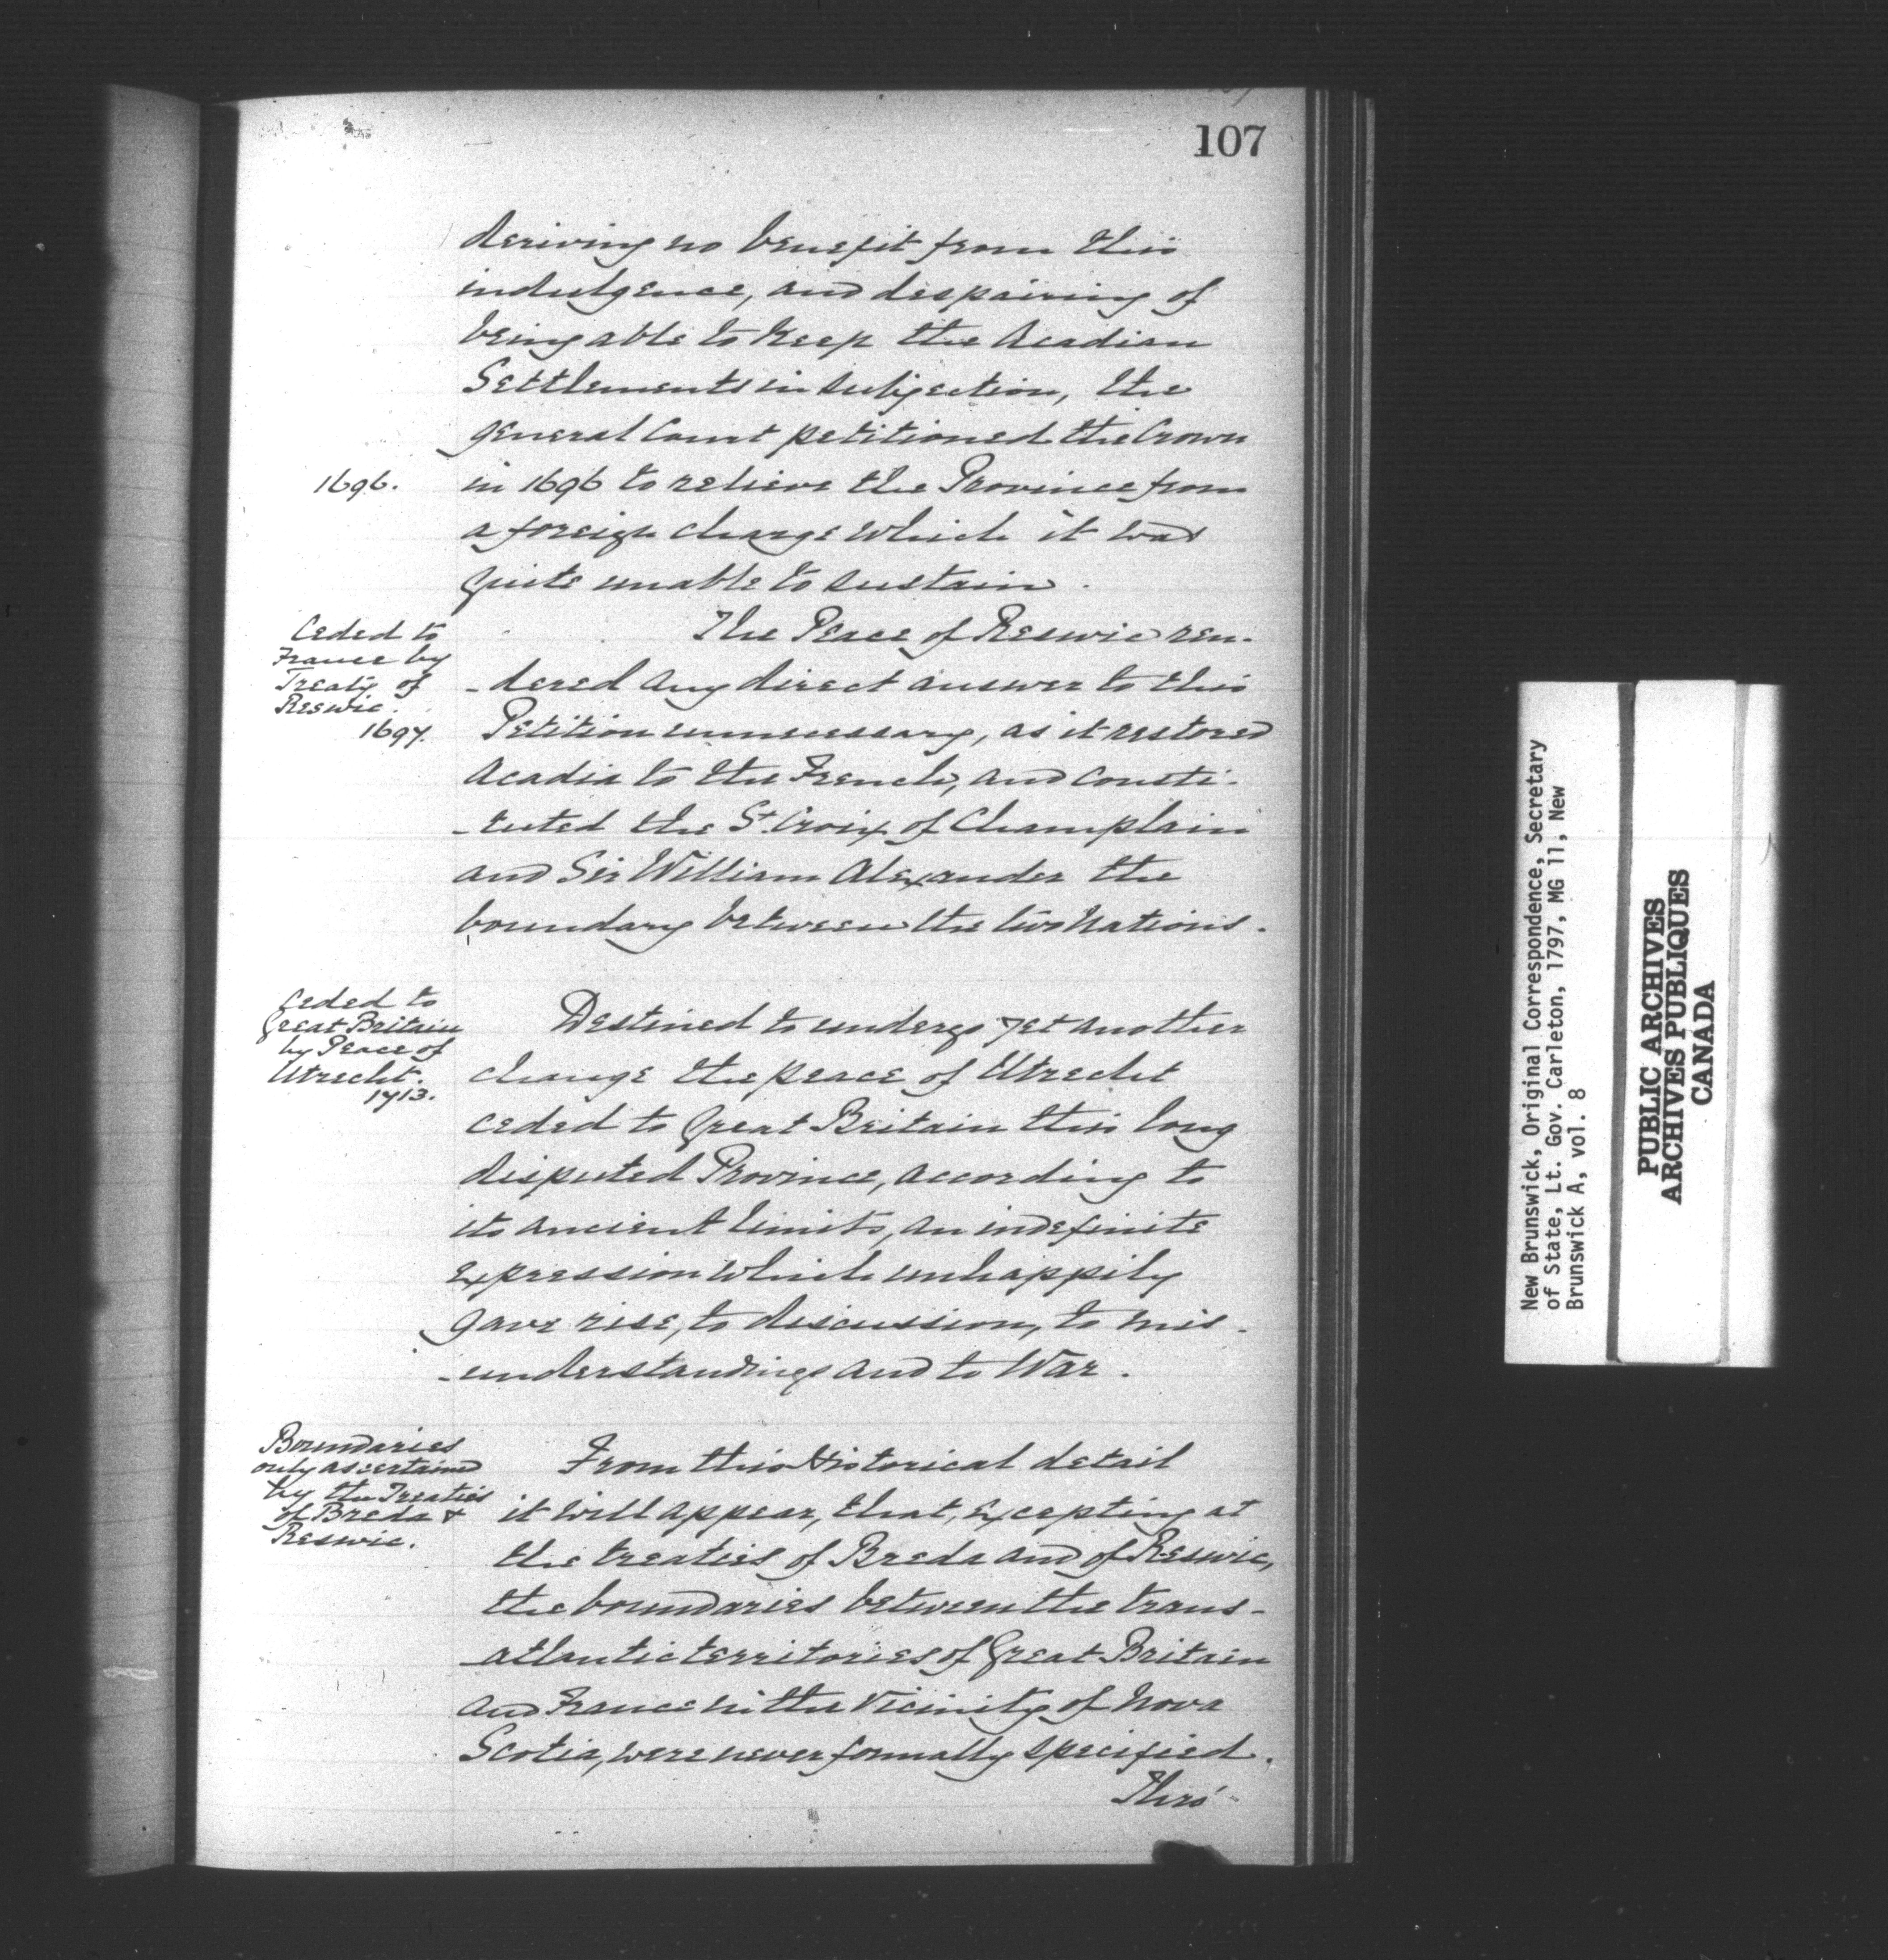 107
deriving no benefit from this
indulgence, and despairing of
being able to keep the Acadian
Settlements in subjection, the
general Court petitioned the Crown
1696.
in 1696 to relieve the Province from
a foreign charge which it was
quite unable to sustain.
Ceded to
France by
Treaty of
Reswic.
1697.
The Peace of Reswic ren-
-dered any direct answer to this
Petition unnecessary, as it restored
Acadia to the French, and consti-
-tuted the St. Croix of Champlain
and Sir William Alexander the
boundary between the two Nations.
Ceded to
Great Britain
by Peace of
Utrecht.
1713.
Destined to undergo yet another
change the peace of Utrecht
ceded to Great Britain this long
disputed Province, according to
its ancient limits, an indefinite
expression which unhappily
gave rise, to discussion, to mis-
-understandings and to War.
Boundaries
only ascertained
by the Treaties
of Breda &
Reswic.
From this Historical detail
it will appear, that, excepting at
the treaties of Breda and of Reswic,
the boundaries between the trans-
-atlantic territories of Great Britain
and France in the Vicinity of Nova
Scotia, were never formally specified.
Thro'
New Brunswick, Original Correspondence, Secretary
of State, Lt. Gov. Carleton, 1797, MG 11, New
Brunswick A, vol. 8
PUBLIC ARCHIVES
ARCHIVES PUBLIQUES
CANADA